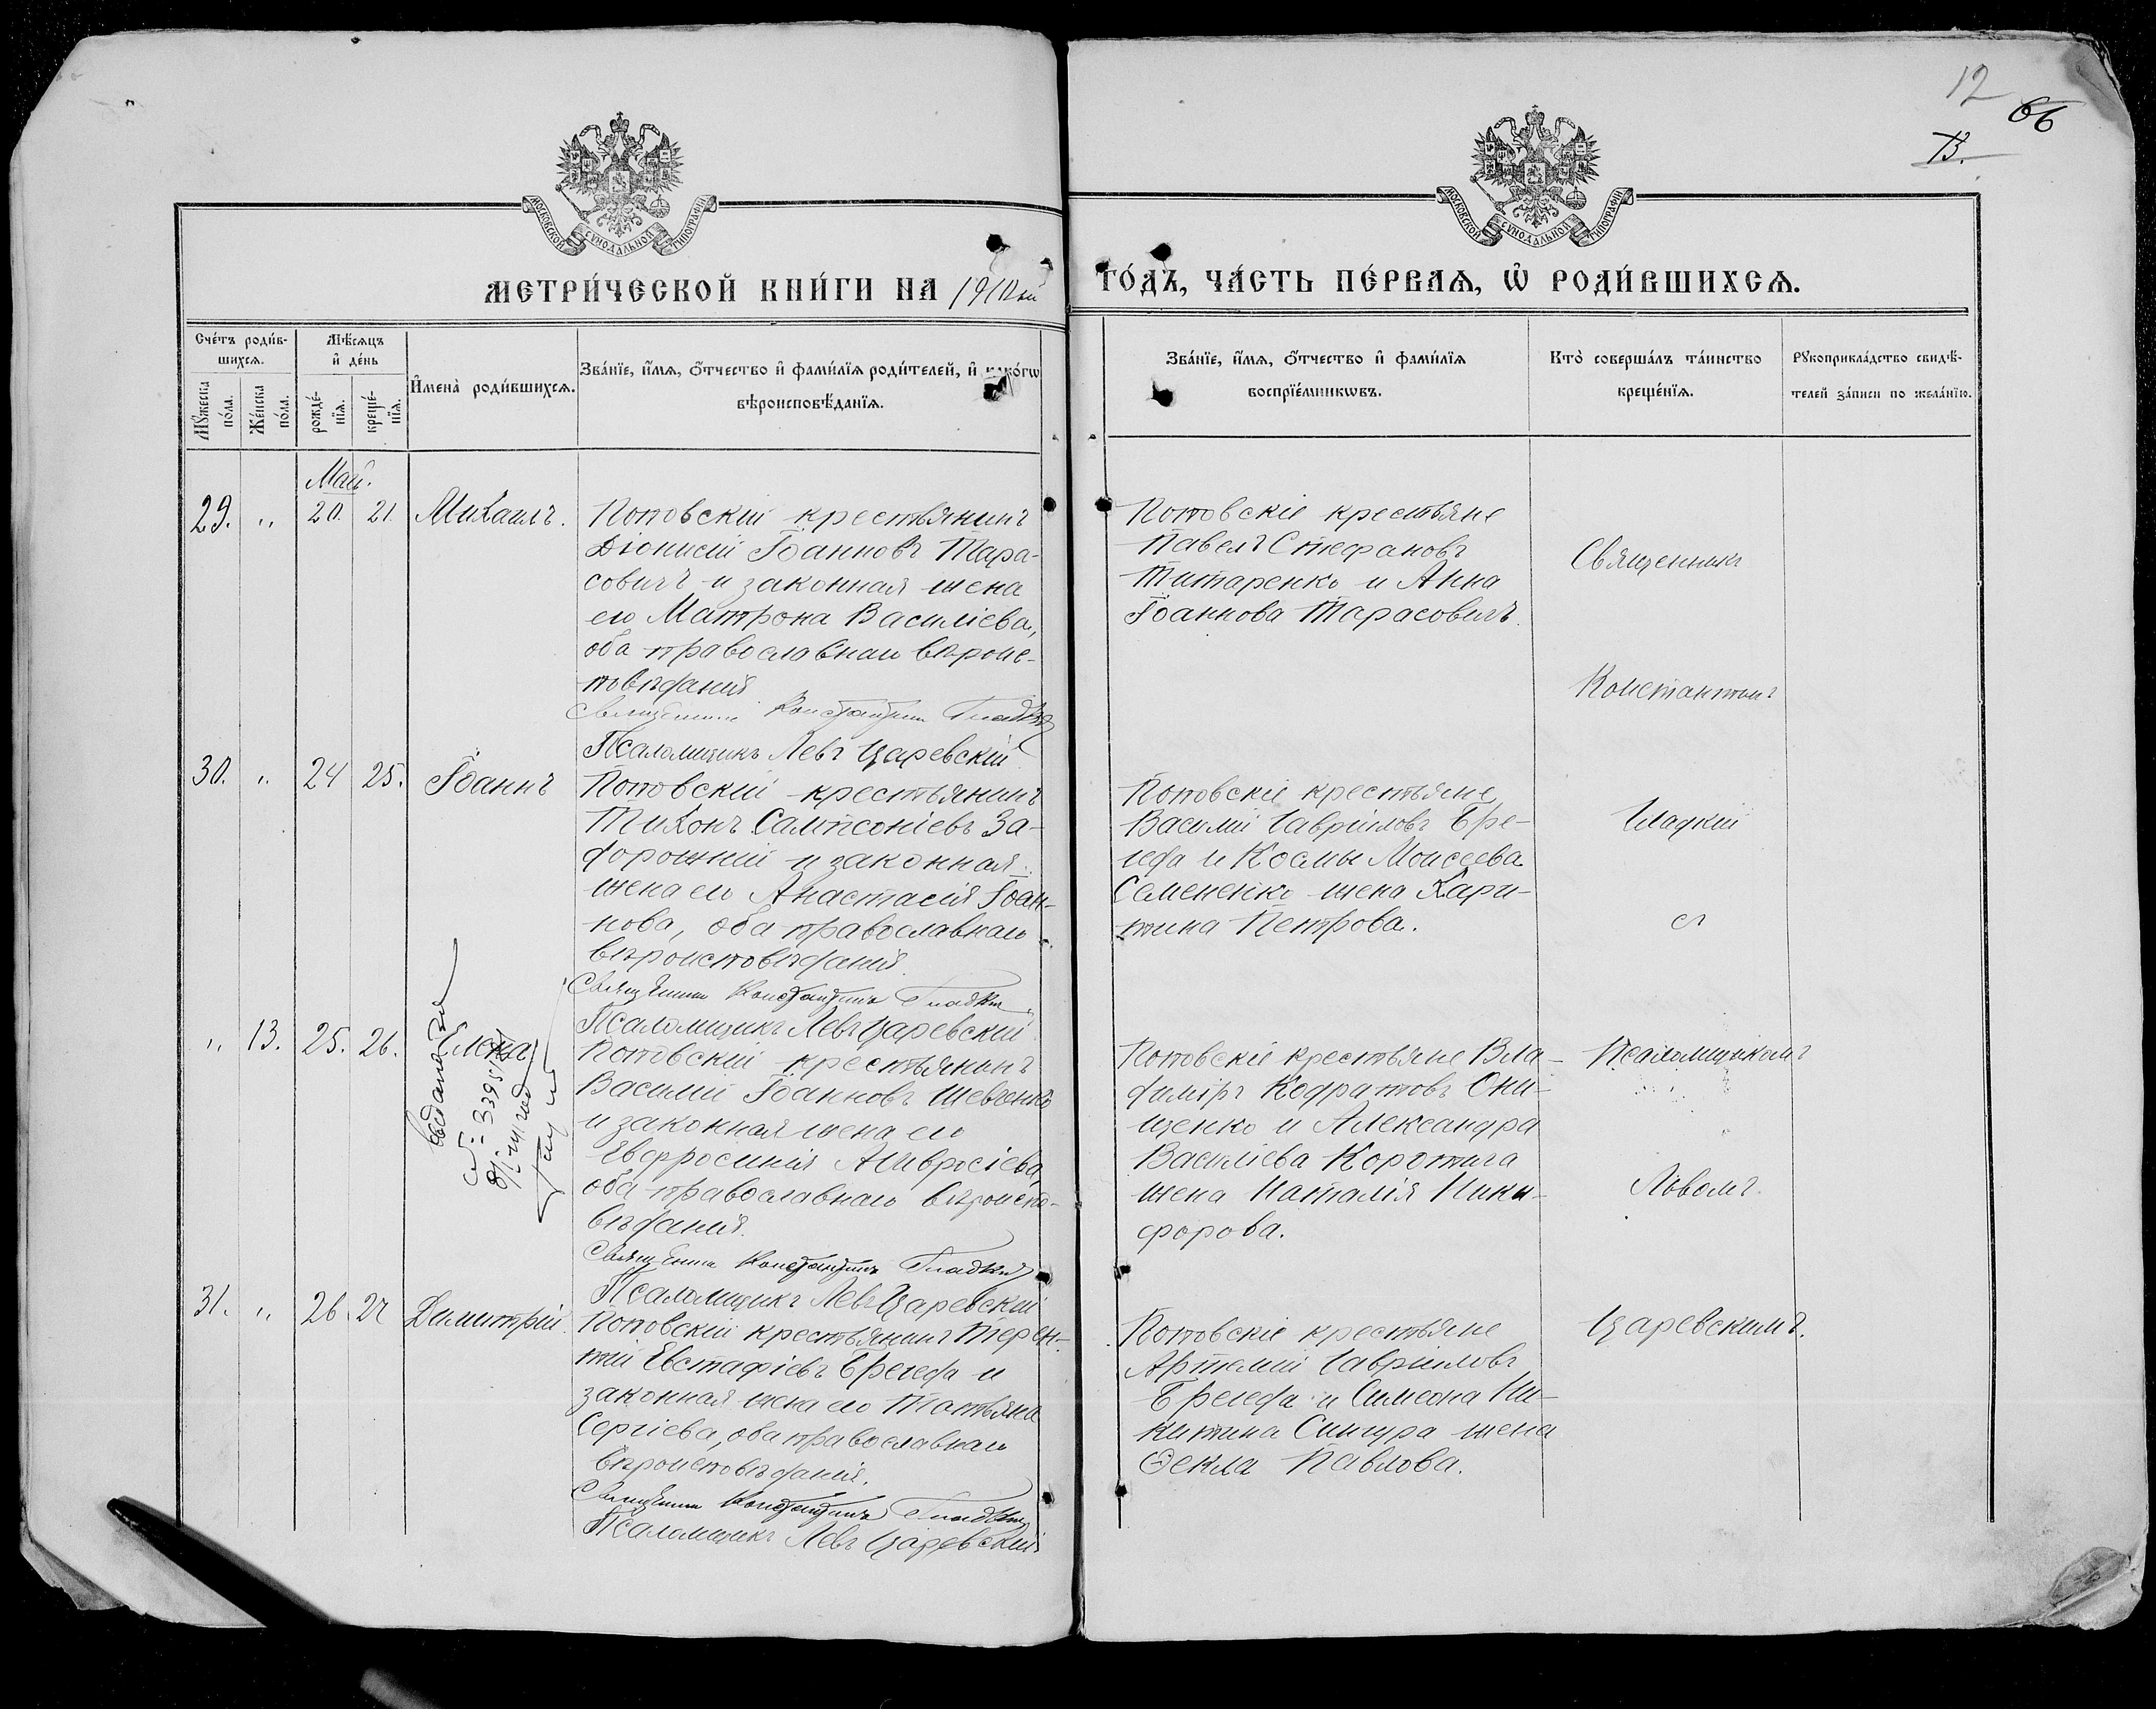 12
66
13.
МОСКОВСКОЙ СѴНОДАЛЬНОЙ ТИПОГРАФІИ
МОСКОВСКОЙ СѴНОДАЛЬНОЙ ТИПОГРАФІИ
МЕТРИ́ЧЕСКОЙ КНИ́ГИ НА
ГО́ДЪ, ЧА́СТЬ ПЕ́РВАѦ, Ѡ҆ РОДИ́ВШИХСѦ.
Сче́тъ роди́в-
шихсѧ.
Мꙋ́жеска
по́ла.
Же́нска
по́ла.
Мѣ́сѧцъ
и҆ де́нь
рожде́-
нїѧ.
креще́-
нїѧ.
И҆мена̀ роди́вшихсѧ.
Зва́нїе, и҆́мѧ, ѻ҆́тчество и҆ фами́лїѧ роди́телей, и҆ како́гѡ
вѣроисповѣ́данїѧ.
Зва́нїе, и҆́мѧ, ѻ҆́тчество и҆ фами́лїѧ
воспрїе́мникѡвъ.
Кто̀ соверша́лъ та́инство
креще́нїѧ.
Рꙋкоприкла́дство свидѣ́-
телей за́писи по жела́нїю.
Май.
29. „ 20. 21. Михаилъ.
Поповскій крестьянинъ
Діонисій Іоанновъ Тара-
совичъ и законная жена
его Матрона Василіева,
оба православнаго вѣроис-
повѣданія
Священникъ Константинъ Гладкій
Псаломщикъ Левъ Царевскій
Поповскіе крестьяне
Павелъ Стефановъ
Титаренко и Анна
Іоаннова Тарасовичъ.
Священникъ
Константинъ
30. „ 24 25. Іоаннъ
Поповскій крестьянинъ
Тихонъ Сампсоніевъ За-
дорожній и законная
жена его Анастасія Іоан-
нова, оба православнаго
вѣроисповѣданія.
Священникъ Константинъ Гладкій
Псаломщикъ Левъ Царевскій
Поповскіе крестьяне
Василій Гавріиловъ Бре-
геда и Космы Моисеева
Семененко жена Хари-
тина Петрова.
Гладкій
с
„ 13. 25. 26. Елена
Поповскій крестьянинъ
Василій Іоанновъ Шевченко
и законная жена его
Евфросинія Амвросіева,
оба православнаго вѣроиспо-
вѣданія.
Священникъ Константинъ Гладкій
Псаломщикъ Левъ Царевскій
Поповскіе крестьяне Вла-
диміръ Кодратовъ Они-
щенко и Александра
Василіева Коротича
жена Наталія Ники-
форова.
Псаломщикомъ
Львомъ
31. „ 26. 27 Димитрій.
Поповскій крестьянинъ Терен-
тій Евстафіевъ Брегеда и
законная жена его Татьяна
Сергіева, оба православнаго
вѣроисповѣданія.
Священникъ Константинъ Гладкій
Псаломщикъ Левъ Царевскій
Поповскіе крестьяне
Артемій Гавріиловъ
Брегеда и Симеона Ни-
китина Сингура жена
Ѳекла Павлова.
Царевскимъ.